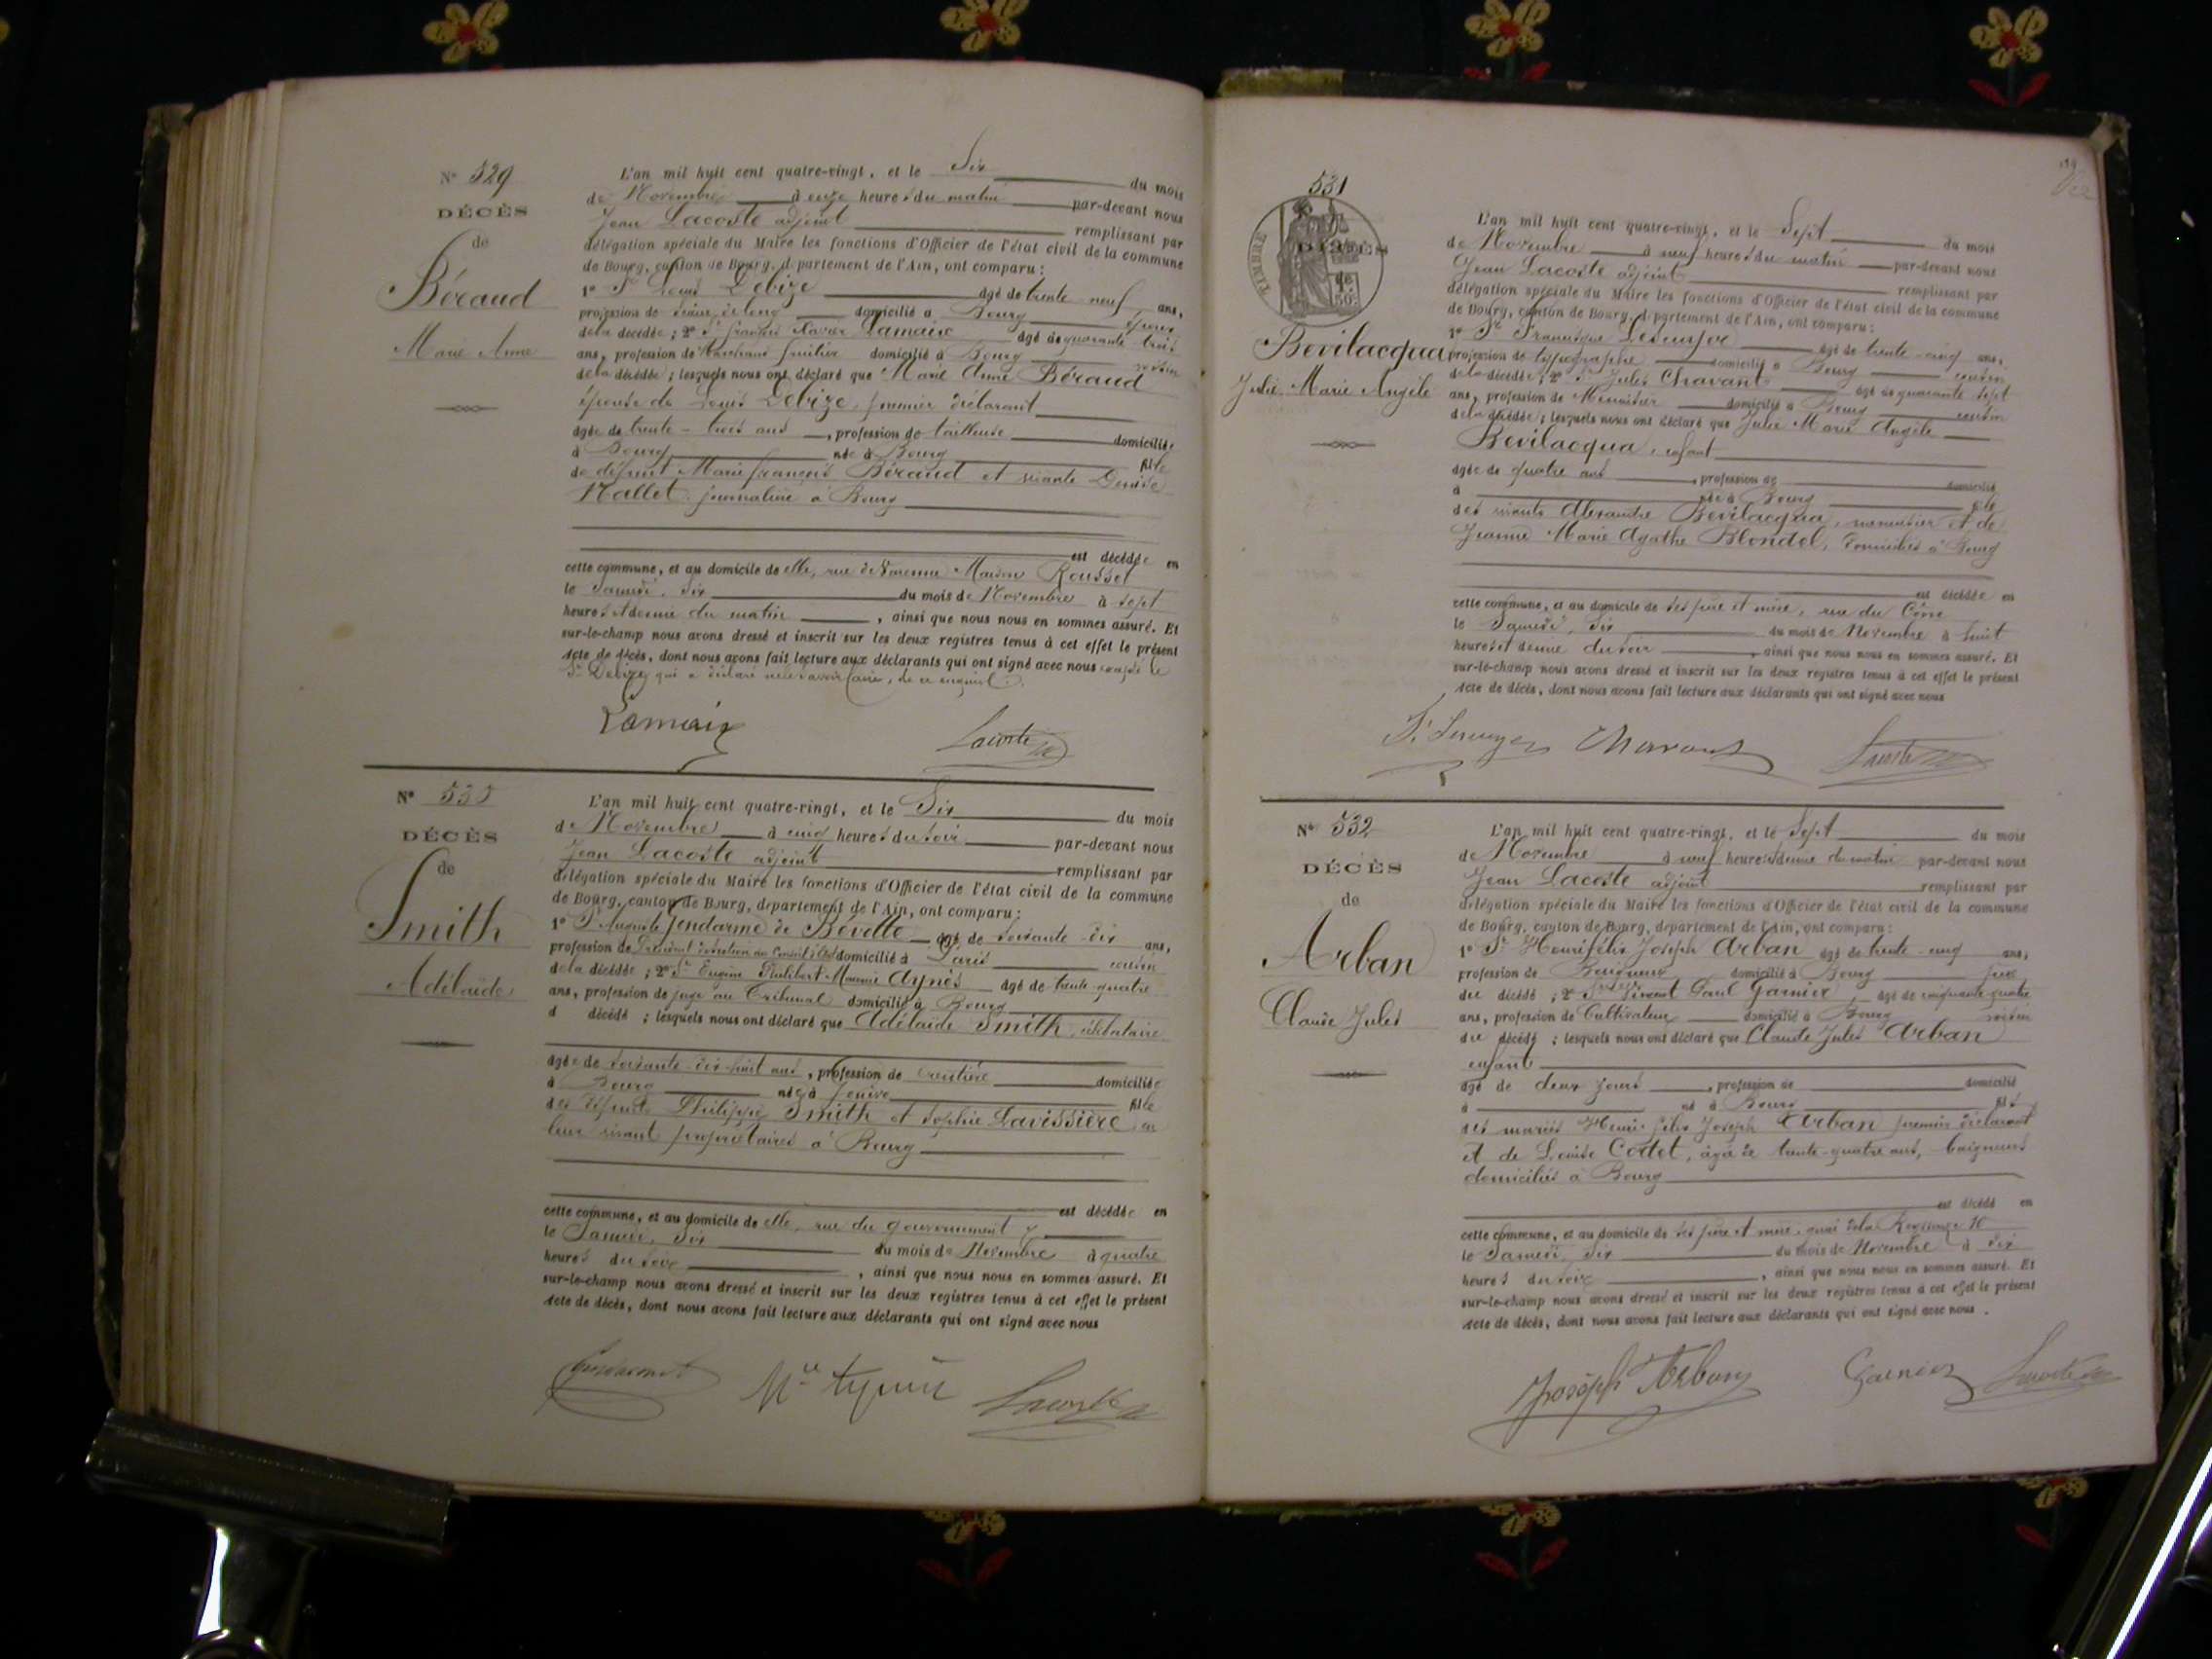 N° 529
DÉCÈS
de
Béraud
Marie Anne
L'an mil huit cent quatre-vingt, et le Six du mois
de Novembre à onze heures du matin par-devant nous
Jean Lacoste adjoint remplissant par
délégation spéciale du Maire les fonctions d'Officier de l'état civil de la commune
de Bourg, canton de Bourg, département de l'Ain, ont comparu :
1° Sr Louis Debize âgé de trente neuf ans,
profession de domicilié à Bourg époux
de la décédée ; 2° Sr François Xavier Lamaix âgé de quarante trois
ans, profession de Marchand fruitier domicilié à Bourg voisin
de la décédée ; lesquels nous ont déclaré que Marie Anne Béraud
épouse de Louis Debize, premier déclarant
âgée de trente-trois ans, profession de tailleuse domiciliée
à Bourg née à Bourg fille
de défunt Marie François Béraud et vivante Denise
Mallet journalière à Bourg
est décédée en
cette commune, et au domicile de elle, rue Maison Roussel
le Samedi, Six du mois de Novembre à sept
heures et demie du matin, ainsi que nous nous en sommes assuré. Et
sur-le-champ nous avons dressé et inscrit sur les deux registres tenus à cet effet le présent
acte de décès, dont nous avons fait lecture aux déclarants qui ont signé avec nous excepté le
Sr Debize qui a déclaré ne le savoir faire, de ce enquis.
Lamaix Lacoste
N° 530
DÉCÈS
de
Smith
Adélaïde
L'an mil huit cent quatre-vingt, et le Six du mois
de Novembre à cinq heures du soir par-devant nous
Jean Lacoste adjoint remplissant par
délégation spéciale du Maire les fonctions d'Officier de l'état civil de la commune
de Bourg, canton de Bourg, département de l'Ain, ont comparu :
1° Sr Auguste Gendarme de Bévotte âgé de soixante-dix ans,
profession de domicilié à Paris cousin
de la décédée ; 2° Sr Eugène Philibert Maurice Aynès âgé de trente-quatre
ans, profession de juge au Tribunal domicilié à Bourg
d décédé ; lesquels nous ont déclaré que Adélaïde Smith, célibataire
âgée de soixante-dix-huit ans, profession de rentière domiciliée
à Bourg née à Genève fille
des défunts Philippe Smith et Sophie Lavissière en
leur vivant propriétaires à Bourg
est décédée en
cette commune, et au domicile de elle, rue du gouvernement 7
le Samedi, Six du mois de Novembre à quatre
heures du soir, ainsi que nous nous en sommes assuré. Et
sur-le-champ nous avons dressé et inscrit sur les deux registres tenus à cet effet le présent
acte de décès, dont nous avons fait lecture aux déclarants qui ont signé avec nous
Lacoste
531
TIMBRE
DÉCÈS
Bevilacqua
Julie Marie Angèle
L'an mil huit cent quatre-vingt, et le Sept du mois
de Novembre à neuf heures du matin par-devant nous
Jean Lacoste adjoint remplissant par
délégation spéciale du Maire les fonctions d'Officier de l'état civil de la commune
de Bourg, canton de Bourg, département de l'Ain, ont comparu :
1° Sr Francisque âgé de trente-cinq ans,
profession de typographe domicilié à Bourg voisin
de la décédée ; 2° Sr Jules Chavant âgé de quarante sept
ans, profession de Menuisier domicilié à Bourg voisin
de la décédée ; lesquels nous ont déclaré que Julie Marie Angèle
Bevilacqua, enfant
âgée de quatre ans, profession de domicilié
à née à Bourg fille
des vivants Alexandre Bevilacqua, menuisier et de
Jeanne Marie Agathe Blondel, domiciliés à Bourg
est décédée en
cette commune, et au domicile de ses père et mère, rue du
le Samedi, Six du mois de Novembre à huit
heures et demie du soir, ainsi que nous nous en sommes assuré. Et
sur-le-champ nous avons dressé et inscrit sur les deux registres tenus à cet effet le présent
acte de décès, dont nous avons fait lecture aux déclarants qui ont signé avec nous
Chavant Lacoste
N° 532
DÉCÈS
de
Arban
Claude Jules
L'an mil huit cent quatre-vingt, et le Sept du mois
de Novembre à neuf heures et demie du matin par-devant nous
Jean Lacoste adjoint remplissant par
délégation spéciale du Maire les fonctions d'Officier de l'état civil de la commune
de Bourg, canton de Bourg, département de l'Ain, ont comparu :
1° Sr Henri félix Joseph Arban âgé de trente-cinq ans,
profession de Baigneur domicilié à Bourg père
du décédé ; 2° Sr Vincent Paul Garnier, âgé de cinquante-quatre
ans, profession de Cultivateur domicilié à Bourg voisin
du décédé ; lesquels nous ont déclaré que Claude Jules Arban
enfant
âgé de deux jours, profession de domicilié
à né à Bourg fils
des mariés Henri félix Joseph Arban premier déclarant
et de Louise Cortet, âgée de trente-quatre ans, baigneurs
domiciliés à Bourg
est décédé en
cette commune, et au domicile de ses père et mère, quai de la Reyssouze 10
le Samedi, Six du mois de Novembre à dix
heures du soir, ainsi que nous nous en sommes assuré. Et
sur-le-champ nous avons dressé et inscrit sur les deux registres tenus à cet effet le présent
acte de décès, dont nous avons fait lecture aux déclarants qui ont signé avec nous.
Joseph Arban Garnier Lacoste